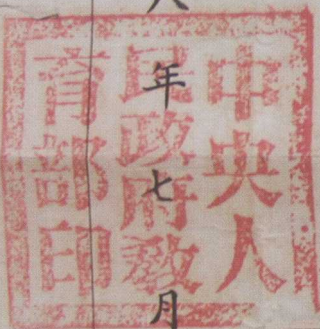 中央人
民政府教
育部印
八年七月